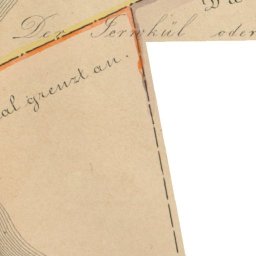 Der Fermkül oder
al grenzt an.